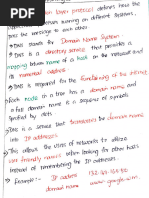 layer protocol defines how the
application processes running on different systems,
pass the message to each other
DNS stands for Domain Name System
DNS is a directory service that provides a
mapping between name of a host on the network and its
numerical address
DNS is required for the functioning of the internet
Each node in a tree has a domain name &
a full domain name is a sequence of symbols
specified by dots
DNS is a service that translates the domain name
into IP addresses
This allows the users of networks to utilize
user friendly names when looking for other hosts
instead of remembering the IP addresses
Example:- IP address
domain name www.google.com